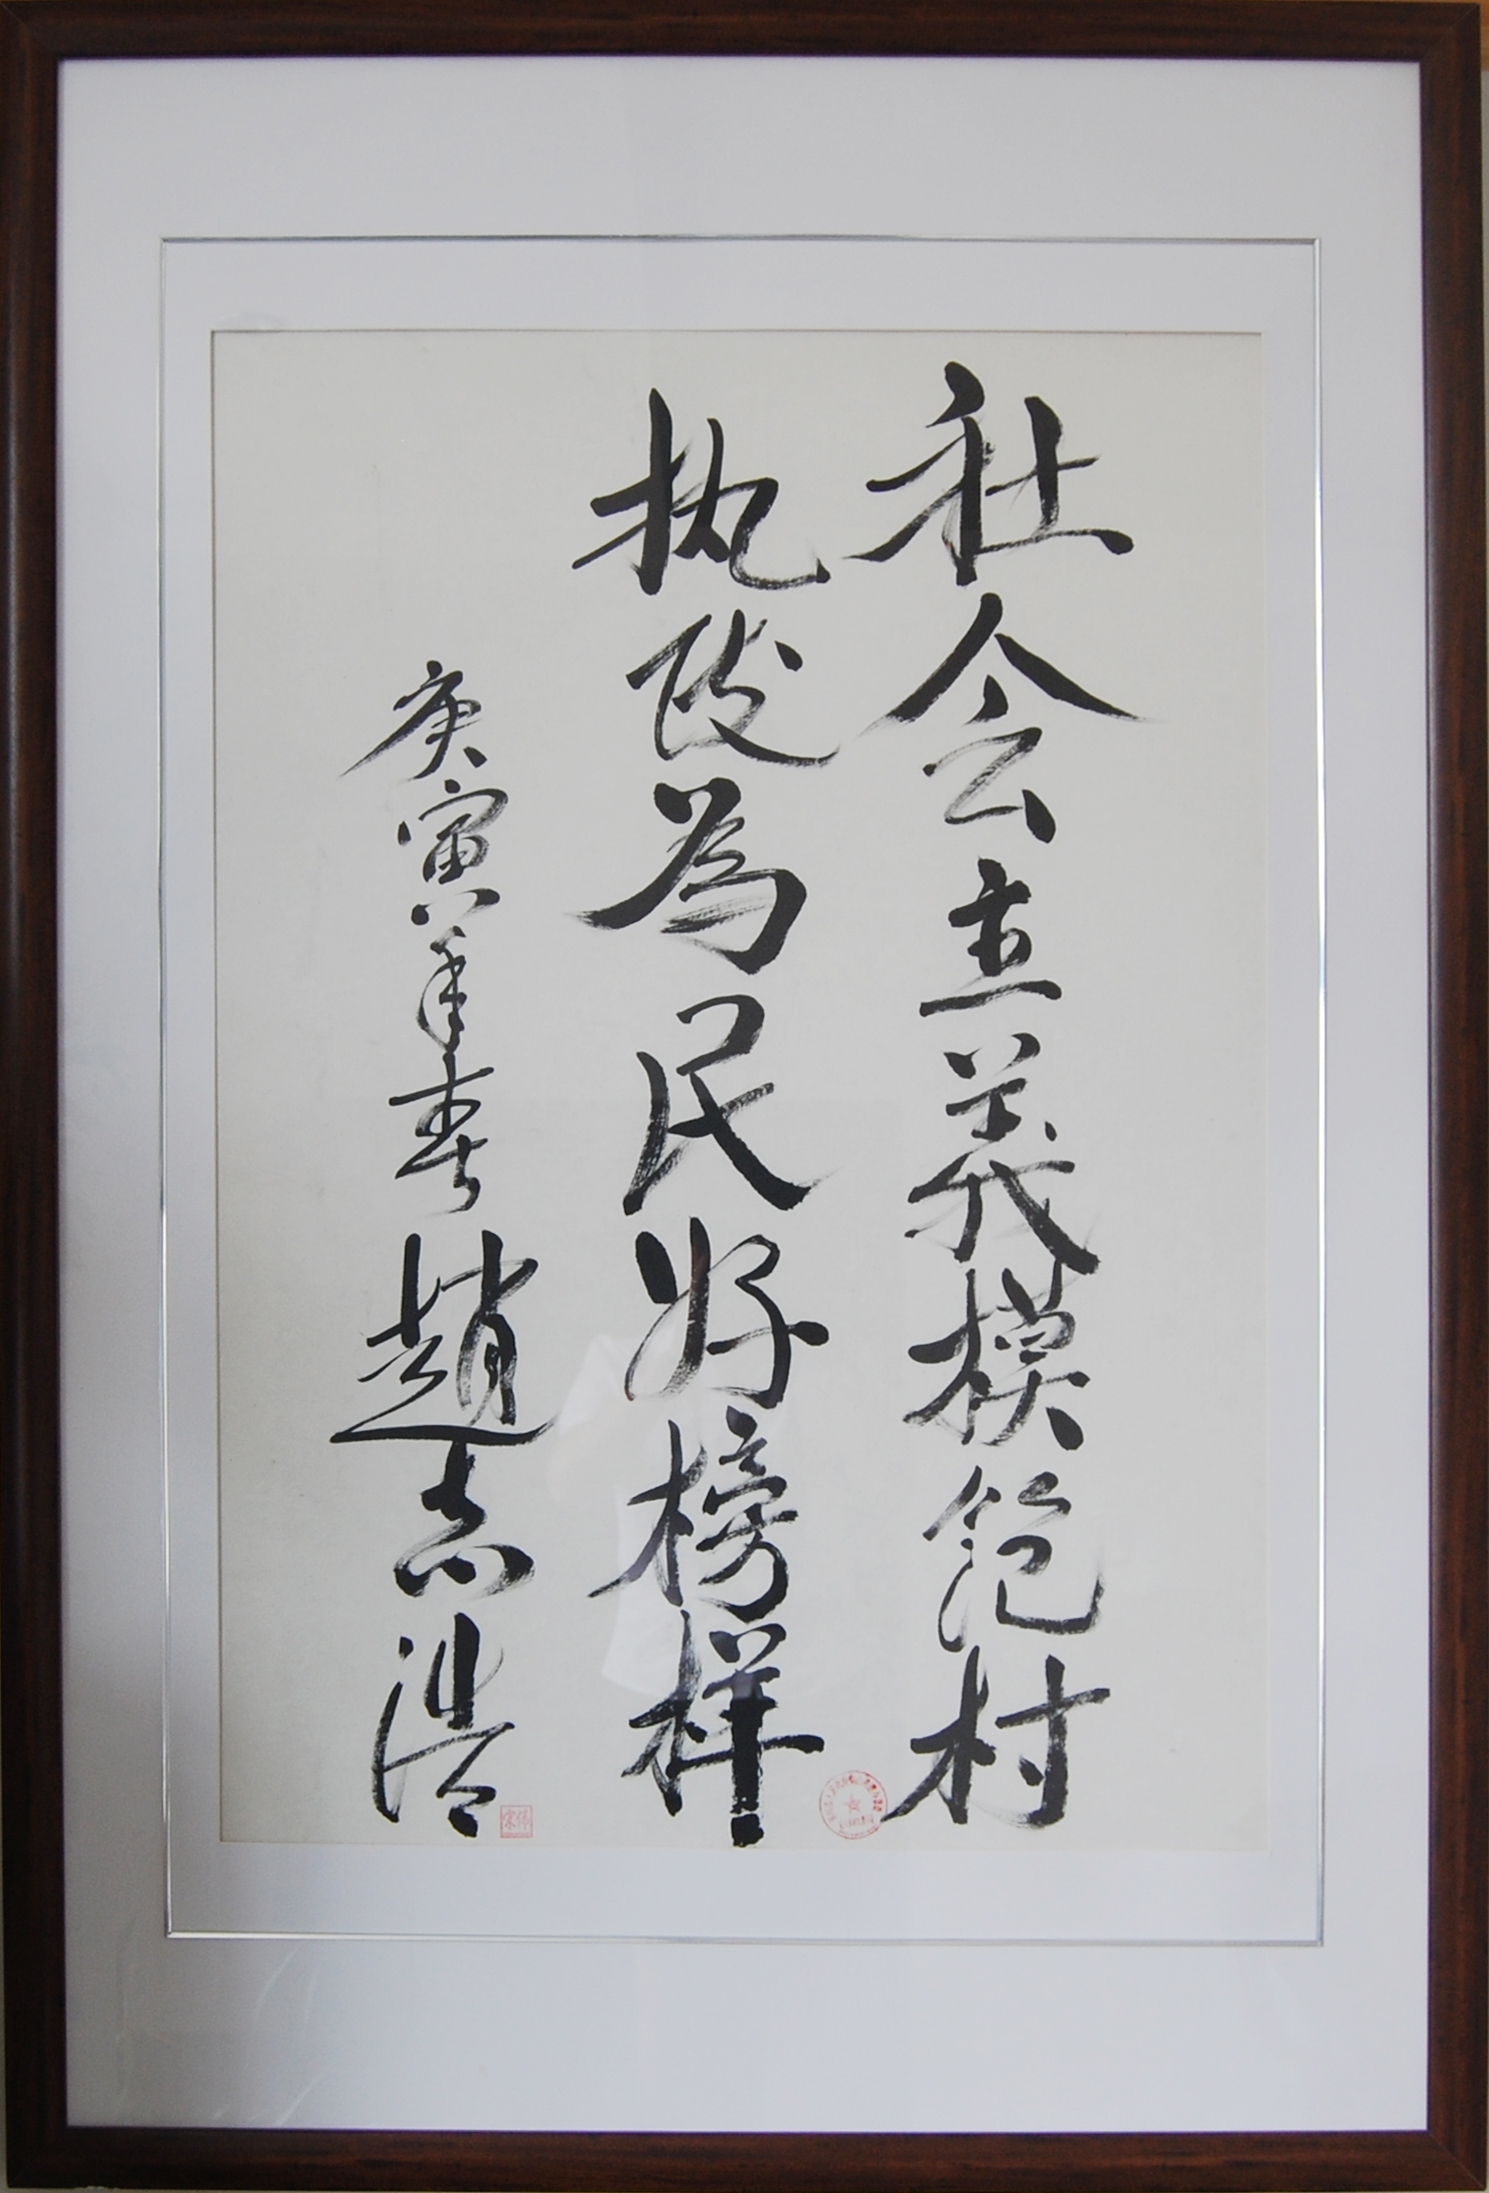 社会主義模范村
执政為民好榜样
庚寅年春 趙志浩